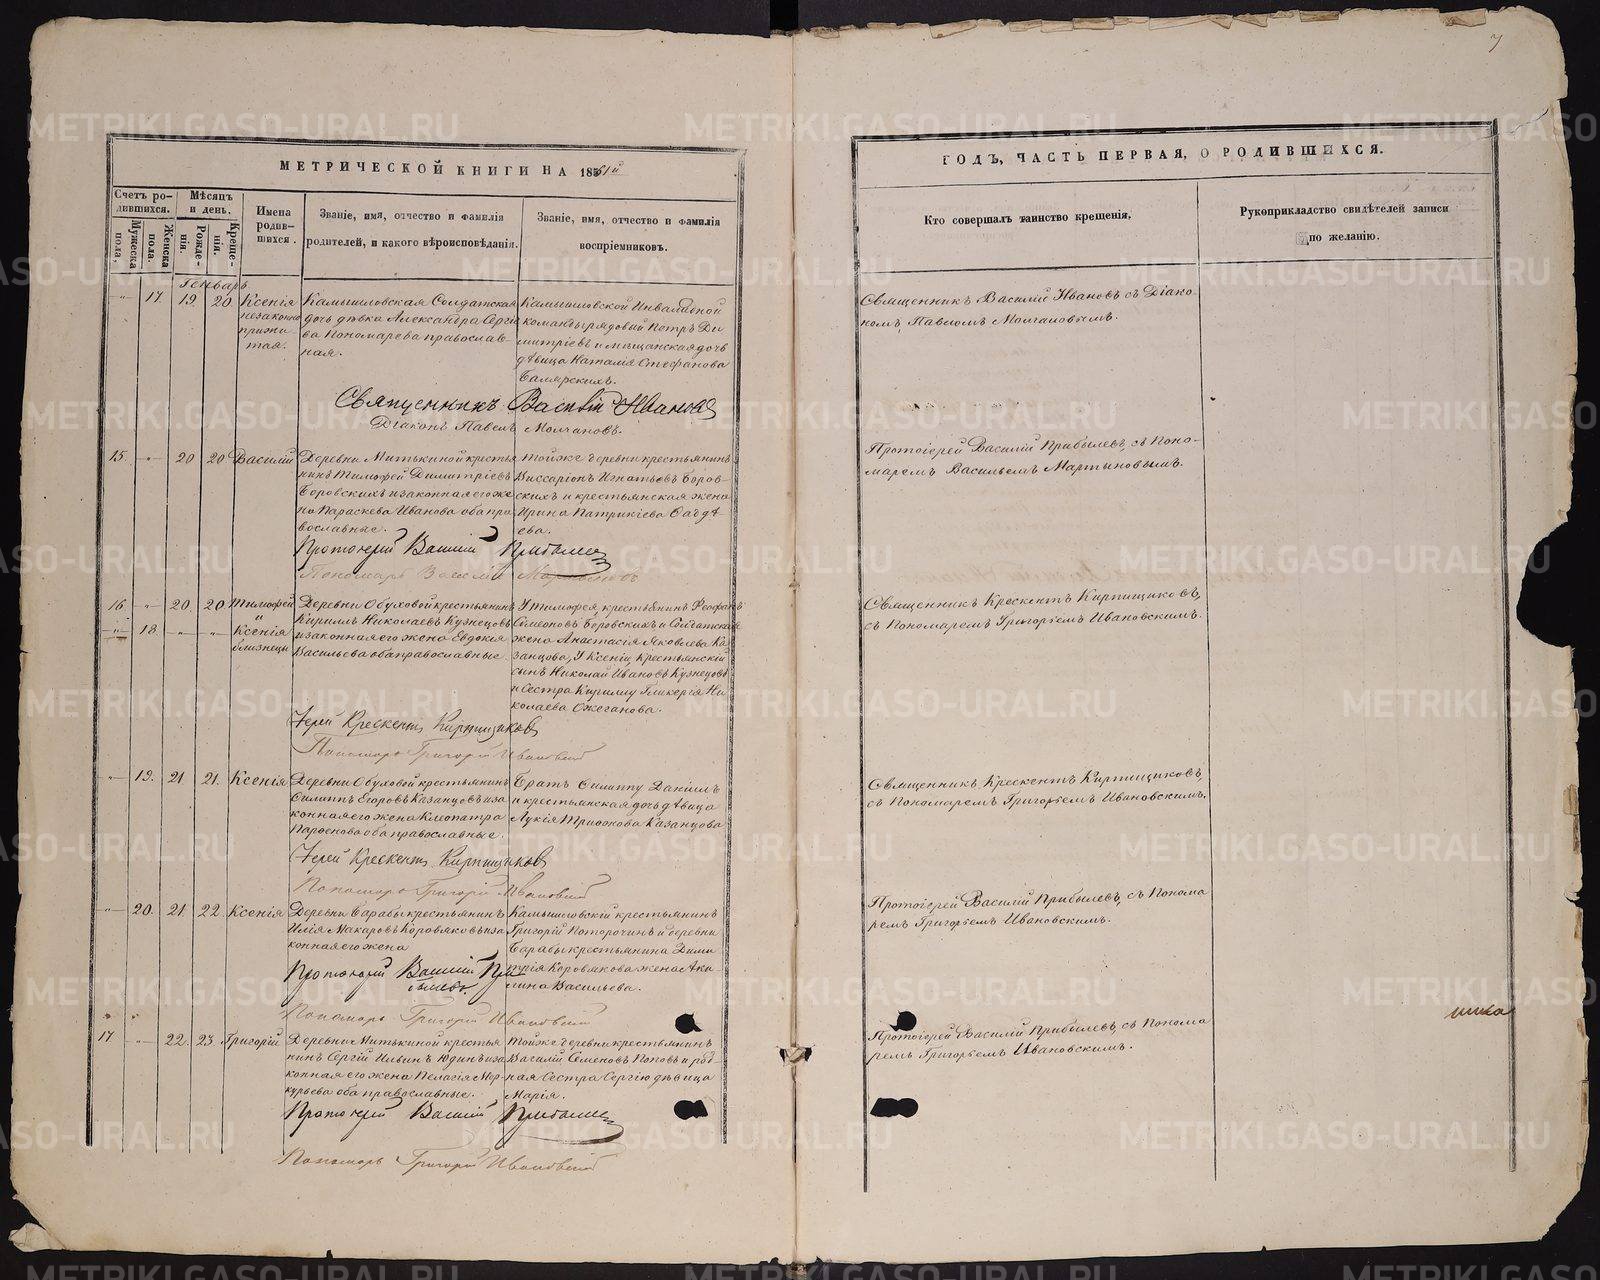 7
МЕТРИЧЕСКОЙ КНИГИ НА 1861й
ГОДЪ, ЧАСТЬ ПЕРВАЯ, О РОДИВШИХСЯ.
Счетъ родившихся.
Мужеска пола.
Женска пола.
Мѣсяцъ и день.
Рожденія.
Крещенія.
Имена родившихся.
Званіе, имя, отчество и фамилія
родителей, и какого вѣроисповѣданія.
Званіе, имя, отчество и фамилія
воспріемниковъ.
Кто совершалъ таинство крещенія,
Рукоприкладство свидѣтелей записи
по желанію.
Генварь.
17. 19 20. Ксенія
незаконно
прижи
тая.
Камышловская Солдатская
дочь дѣвка Александра Сергіе
ва Пономарева православ-
ная.
Камышловской Инвалидной
команды рядовой Петръ Ди
митріевъ и мѣщанская дочь
дѣвица Наталія Стефанова
Балярскихъ.
Священникъ Василій Ивановъ съ Діако-
номъ Павломъ Молчановымъ.
Священникъ Василій Ивановъ
Діаконъ Павелъ Молчановъ.
15. 20 20 Василій
Деревни Митькиной крестья
нинъ Тимофей Димитріевъ
Боровскихъ и законная его же
на Параскева Иванова оба пра
вославные.
тойже деревни крестьянинъ
Виссаріонъ Игнатьевъ Боров-
скихъ и крестьянская жена
Ирина Патрикіева Фадѣ
ева.
Протоіерей Василій Прибылевъ, съ Поно-
маремъ Васильемъ Мартыновымъ.
Протоіерей Василій Прибылевъ
Пономарь Василій Мартыновъ
16. 20. 20 Тимофей
18. Ксенія
близнецы
Деревни Обуховой крестьянинъ
Кириллъ Николаевъ Кузнецовъ
и законная его жена Евдокія
Васильева оба православные.
У Тимофея, крестьянинъ Феофанъ
Симеоновъ Боровскихъ и Солдатская
жена Анастасія Яковлева Ка
занцова, У Ксеніи, крестьянскій
сынъ Николай Ивановъ Кузнецовъ
и сестра Кириллу Гликерія Ни
колаева Ожеганова.
Священникъ Крескентъ Кирпищиковъ,
съ Пономаремъ Григорьемъ Ивановскимъ.
Іерей Крескентъ Кирпищиковъ
Пономарь Григорій Ивановскій
19. 21 21. Ксенія
Деревни Обуховой крестьянинъ
Филиппъ Егоровъ Казанцовъ и за
конная его жена Клеопатра
оба православные.
Братъ Филиппу Даніилъ
и крестьянская дочь дѣвица
Лукія Трифонова Казанцова
Священникъ Крескентъ Кирпищиковъ,
съ Пономаремъ Григорьемъ Ивановскимъ.
Іерей Крескентъ Кирпищиковъ
Пономарь Григорій Ивановскій
20. 21. 22. Ксенія
Деревни Барабы крестьянинъ
Илія Макаровъ Коровяковъ и за
конная его жена
Камышловскій крестьянинъ
Григорій Поторочинъ и деревни
Барабы крестьянина Дими
трія Коровякова жена Аки-
лина Васильева.
Протоіерей Василій Прибылевъ, съ Понома
ремъ Григорьемъ Ивановскимъ.
Протоіерей Василій При
былевъ.
Пономарь Григорій Ивановскій
17 22. 23. Григорій
Деревни Митькиной крестья
нинъ Сергій Ильинъ Юдинъ и за
конная его жена Пелагія Мер-
курьева оба православные.
тойже деревни крестьянинъ
Василій Семеновъ Поповъ и род-
ная сестра Сергію дѣвица
Марія.
Протоіерей Василій Прибылевъ, съ Понома
ремъ Григорьемъ Ивановскимъ.
Протоіерей Василій Прибылевъ
Пономарь Григорій Ивановскій
METRIKI.GASO-URAL.RU